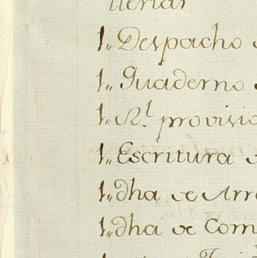 1,, Despacho
1,, Quaderno
1,, Rl. provisio
1,, Escritura
1,, dha de Arr
1,, dha de Com